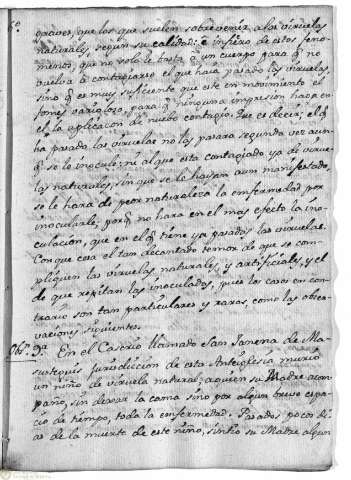 graves, que los que suelen sobrevenir a las viruelas
naturales, segun su calidad: e infiero de estos feno-
menos, que no solo le basta a un cuerpo para q.e no
vuelva a contagiarse el que haia pasado las viruelas,
sino q.e es muy suficiente que esté en movimiento el
fomes varioloso, para q.e ninguna impresion haga en
el la aplicacion de nuebo contagio. Esto es decir; el q.e
ha pasado las viruelas no las pasara segunda vez aun-
q.e se lo inocule; ni al que está contagiado ya de virue-
las naturales, sin que se le hayan aun manifestado,
se le hara de peor naturaleza la enfermedad por
inocularle, porq.e no hara en el mas efecto la ino-
culacion, que en el q.e tiene ya pasadas las viruelas.
Con que cesa el tan decantado temor de que se com-
pliquen las viruelas, naturales, y artificiales, y el
de que repitan las inoculados, pues los casos en con-
trario son tan particulares y raros, como las obser-
vaciones siguientes.
Obs.n 3.a En el Caserio llamado San Janena de Ma-
sustegui jurisdiccion de esta Anteiglesia murió
un niño de viruela natural; a quien su Madre acom-
paño, sin dexar la cama sino por algun breve espa-
cio de tiempo, toda la enfermedad. Pasados pocos di-
as de la muerte de este niño, sintio su Madre algun